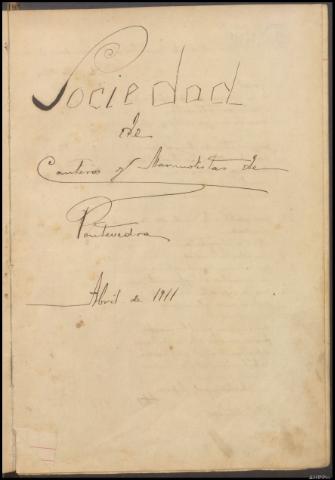 Sociedad
de
Canteros y Marmolistas de
Pontevedra
Abril de 1911